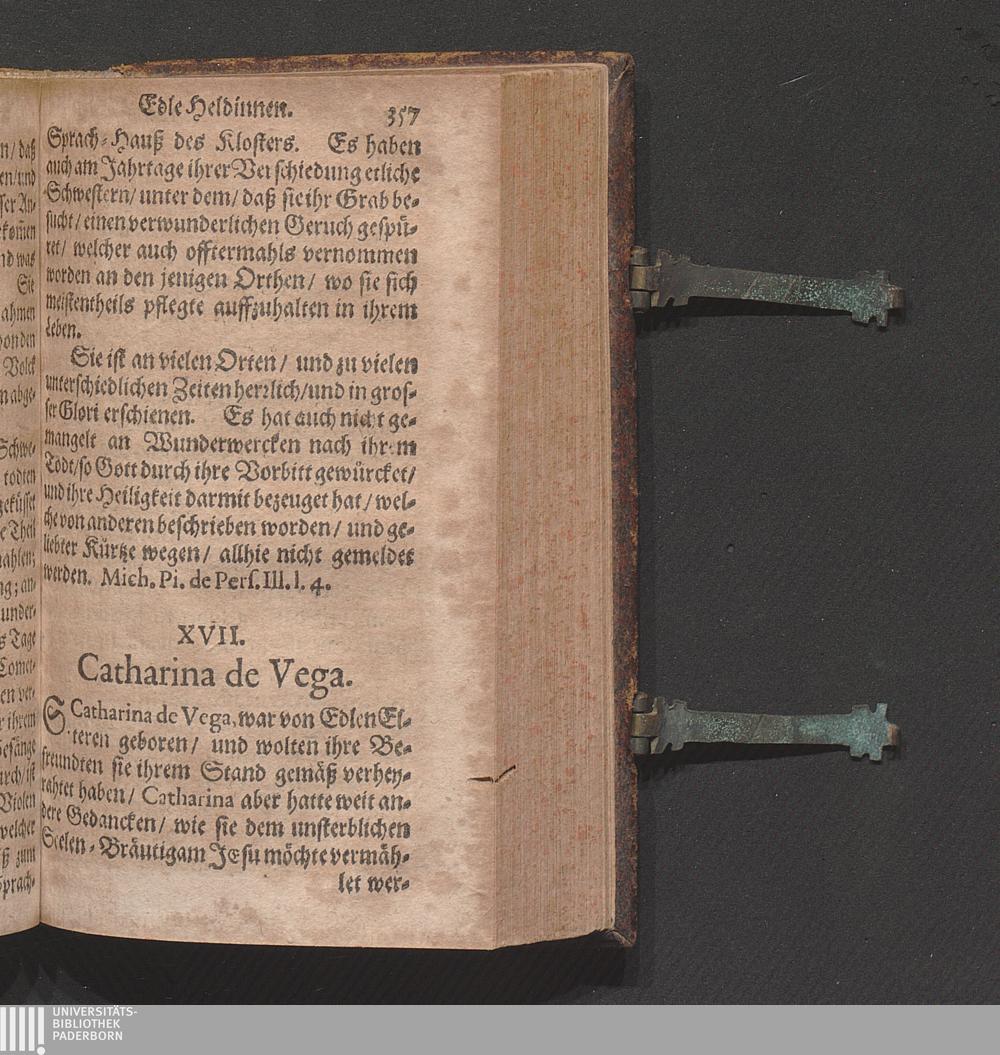 n/ daß
en/und
ser An-
kom̃en
nd was
Sie
ahmen
von den
Volck
n abge-
Schwe-
todten
geküsset
e Theil
mahlen;
ng; an-
under-
s Tage
Comet-
en ver-
r ihrem
Gesänge
urch/ist
Violen
welcher
ß zum
Sprach-
Edle Heldinnen. 357
Sprach-Hauß des Klosters. Es haben
auch am Jahrtage ihrer Verschiedung etliche
Schwestern/ unter dem/ daß sie ihr Grab be-
sucht/ einen verwunderlichen Geruch gespü-
ret/ welcher auch offtermahls vernommen
worden an den jenigen Orthen/ wo sie sich
meistentheils pflegte auffzuhalten in ihrem
Leben.
Sie ist an vielen Orten/ und zu vielen
unterschiedlichen Zeiten herrlich/und in gros-
ser Glori erschienen. Es hat auch nicht ge-
mangelt an Wunderwercken nach ihrem
Todt/so Gott durch ihre Vorbitt gewürcket/
und ihre Heiligkeit darmit bezeuget hat/ wel-
che von anderen beschrieben worden/ und ge-
liebter Kürtze wegen/ allhie nicht gemeldet
werden. Mich. Pi. de Pers. Ill. l. 4.
XVII.
Catharina de Vega.
S. Catharina de Vega, war von Edlen El-
teren geboren/ und wolten ihre Be-
freundten sie ihrem Stand gemäß verhey-
rahtet haben/ Catharina aber hatte weit an-
dere Gedancken/ wie sie dem unsterblichen
Seelen-Bräutigam JEsu möchte vermäh-
let wer-
UNIVERSITÄTS-
BIBLIOTHEK
PADERBORN